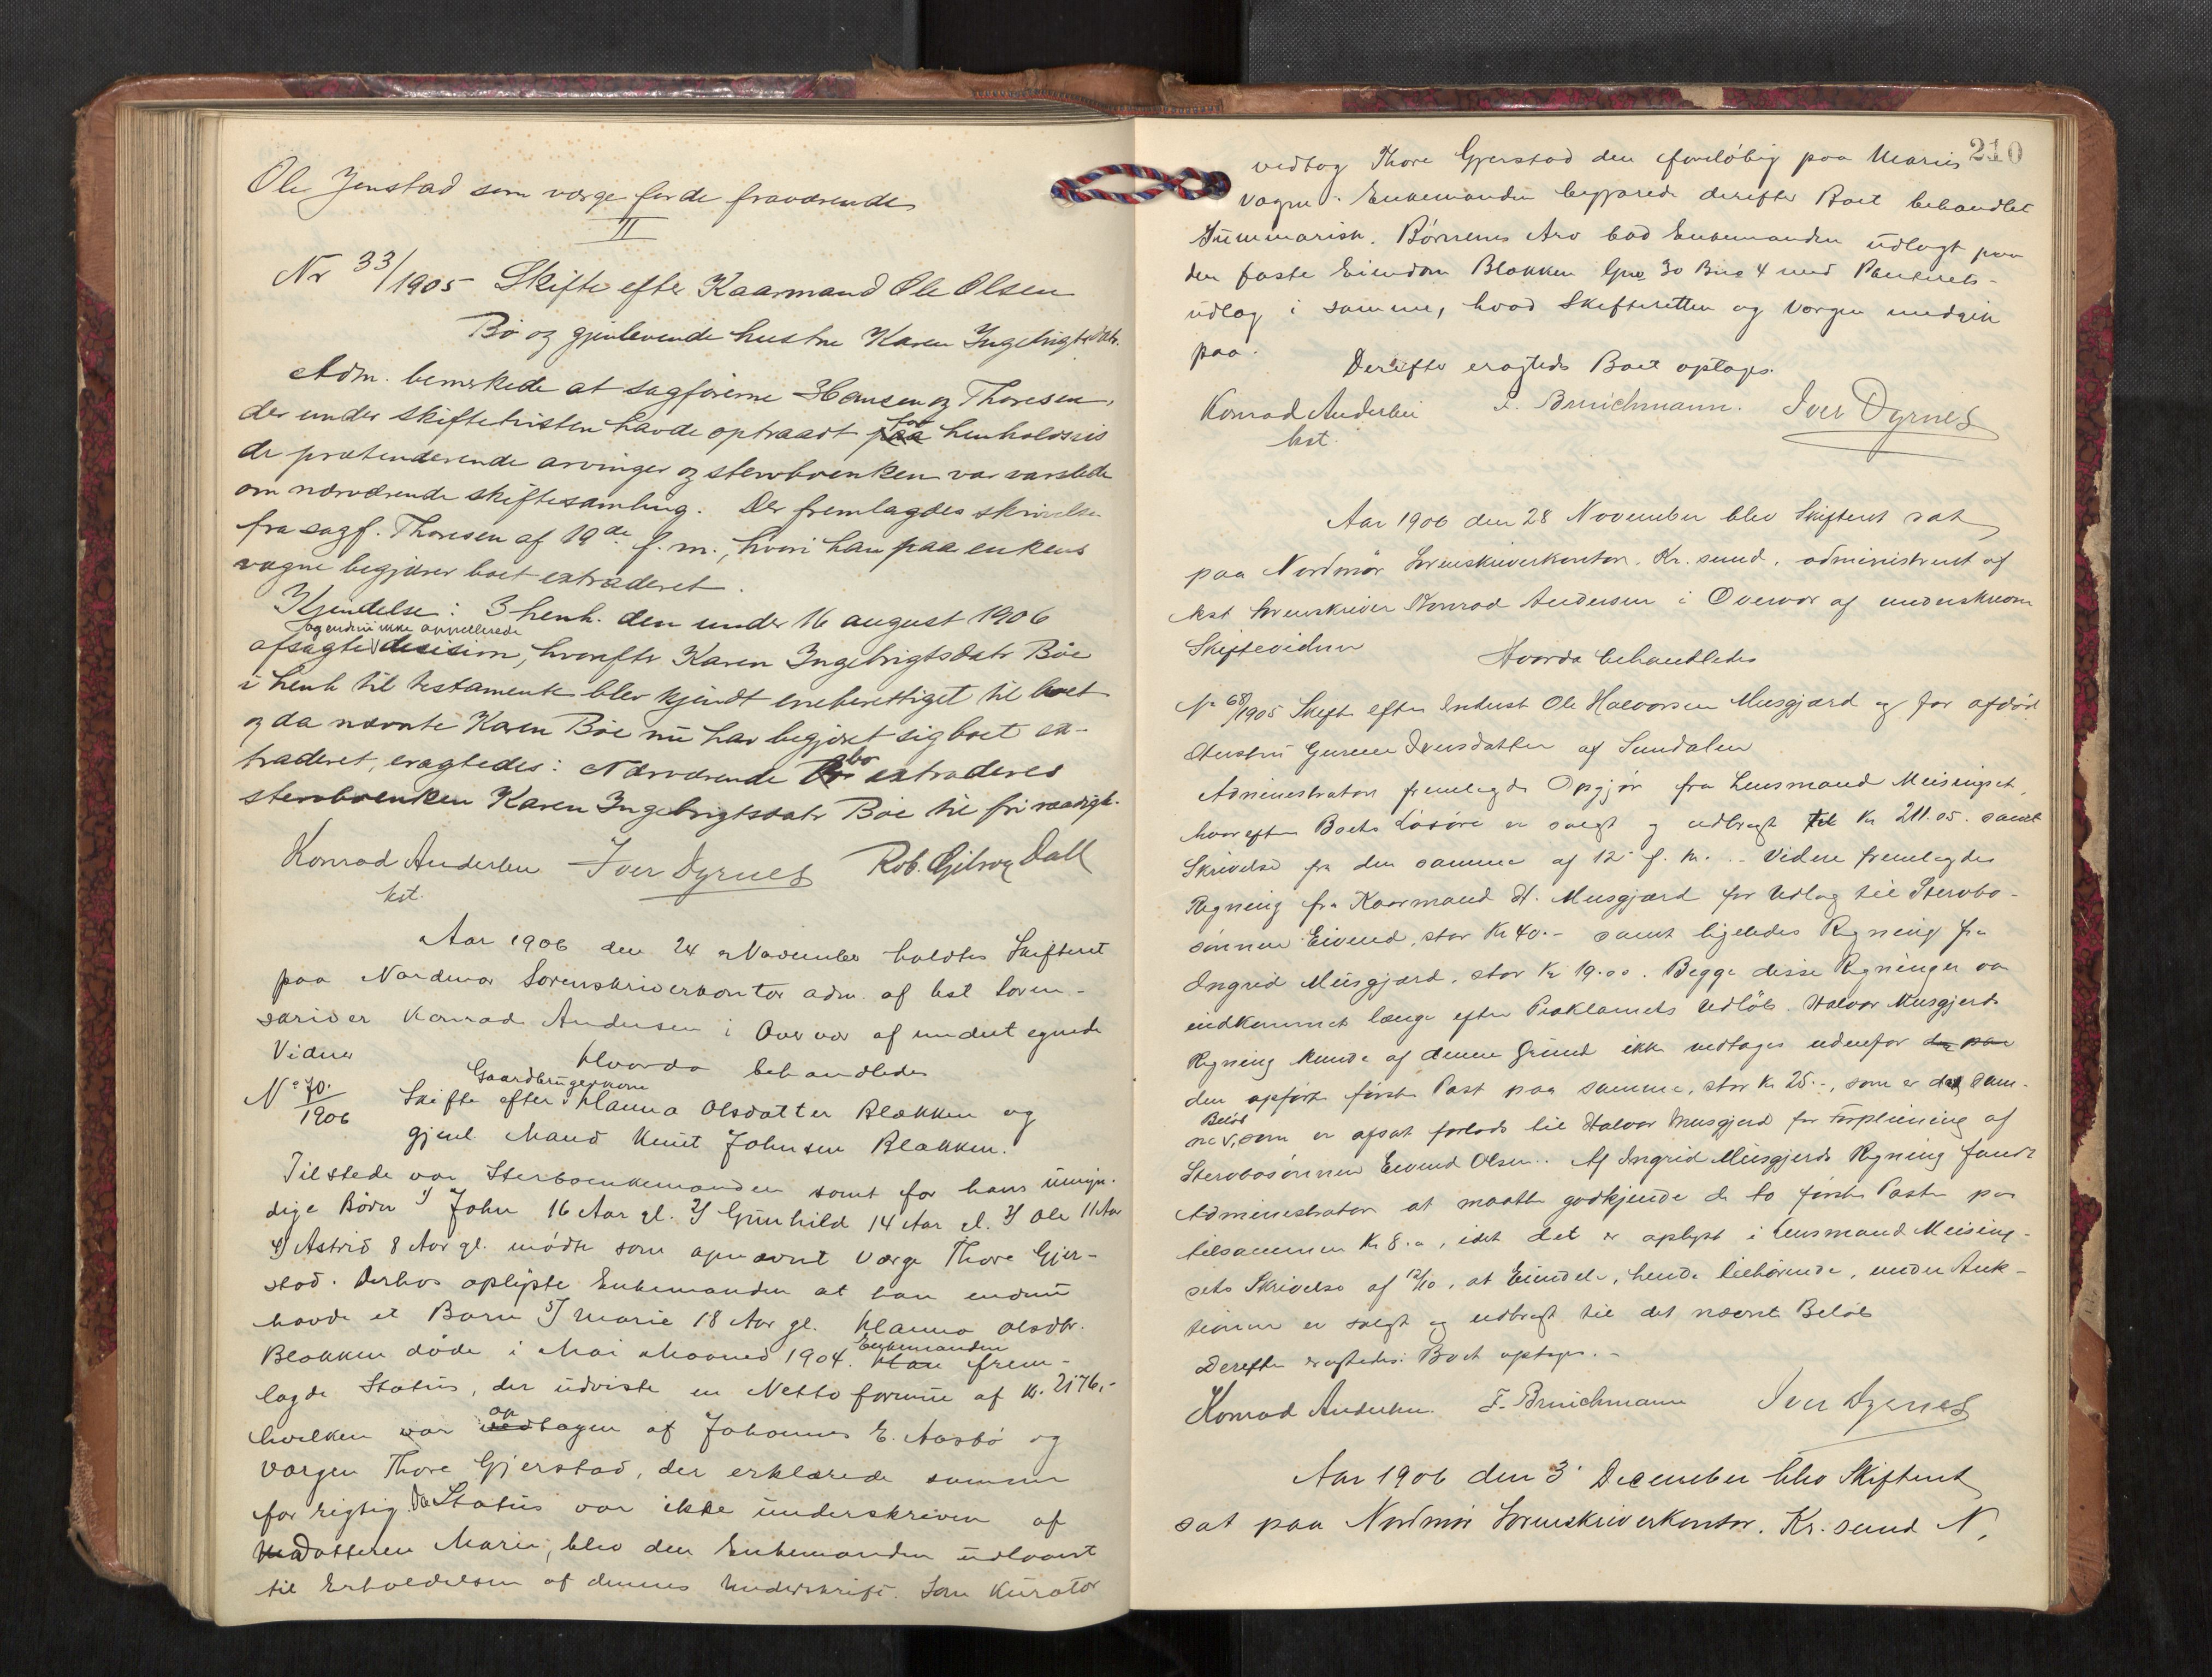 Ole Jenstad som værge for de fraværende
II
Nr 33/1905 Skifte efter Kaarmand Ole Olsen
Bö og gjenlevende hustru Karen Ingebrigtsdatr.
Adm. bemerkede at sagförerne Hansen og Thoresen,
der under skiftetvisten havde optraadt for henholdsvis
de prætenderende arvinger og stervboenken var varslede
om nærværende skiftesamling. Der fremlagdes skrivelse
fra sagf. Thoresen af 19de f. m., hvori han paa enkens
vegne begjærer boet extraderet.
Kjendelse: I henh. den under 16 august 1906
afsagte og endnu ikke appellerede desision, hvorefter Karen Ingebrigtsdatr Böe
i henh til testamente blev kjendt eneberettiget til boet
og da nævnte Karen Böe nu har begjæret sig boet ex-
traderet, eragtedes: Nærværende bo extraderes
stervboenken Karen Ingebrigtsdatr Böe til fri raadigh.
Konrad Andersen Iver Dyrnes Rob. Gjelsvog Dall
kst.
Aar 1906 den 24 November holdtes Skifteret
paa Nordmør Sorenskriverkontor adm. af kst Soren-
skriver Konrad Andersen i Overvær af undertegnede
Vidner
Hvorda behandledes
No 70/1906 Skifte efter Gaardbrugerkone Hanna Olsdatter Blakken og
gjenl. Mand Knut Johnsen Blakken.
Tilstede var Sterboenkemanden samt for hans umyn-
dige Börn 1) John 16 Aar gl. 2) Gunhild 14 Aar gl. 3) Ole 11 Aar
4) Astrid 8 Aar gl. mødte som opnævnt Værge Thore Gjer-
stad. Derhos oplyste Enkemanden at han endnu
havde et Barn 5) Marie 18 Aar gl. Hanna Olsdtr.
Blakken døde i Mai Maaned 1904. Enkemanden frem-
lagde Status, der udviste en Netto formue af Kr. 2176,-
hvilken var optagen af Johannes E. Aasbø og
Værgen Thore Gjerstad, der erklærede samme
for rigtig. Da Status var ikke underskreven af
Datteren Marie, blev den Enkemanden udlaant
til Erholdelsen af dennes Underskrift. Som Kurator
210
vedtog Thore Gjerstad den foreløbig paa Maries
Vegne. Enkemanden begjærede derefter Boet behandlet
summarisk. Børnenes Arv bad Enkemanden udlagt paa
den faste Eiendom Blakken Gno 30 Bno 4 med Panterets-
udlæg i samme, hvad Skifteretten og Værgen indgik
paa.
Derefter eragtedes Boet optages.
Konrad Andersen F. Bruichmann. Iver Dyrnes
kst.
Aar 1906 den 28 November blev Skifteret sat
paa Nordmör Sorenskriverkontor, Kr. sund, administreret af
kst Sorenskriver Konrad Andersen i Overvær af underskrevne
Skiftevidner
Hvorda behandledes
No 68/1905 Skifte efter Inderst Ole Halvorsen Musgjærd og för afdöd
Hustru Gurine Iversdatter af Sundalen
Administrator fremlagde Opgjör fra Lensmand Meisingset,
hvorefter Boets Lösöre er solgt og udbragt til Kr 211.05. samt
Skrivelse fra den samme af 12 f. M. - Videre fremlagdes
Regning fra Kaarmand H. Musgjærd for Udlæg til Stervbo-
sønnen Eivind, stor Kr 40.- samt ligeledes Regning fra
Ingrid Musgjærd, stor Kr 19.00. Begge disse Regninger var
indkommet længe efter Proklamets Udlöb. Halvor Musgjerds
Regning kunde af denne Grund ikke vedtages udenfor
den opførte første Post paa samme, stor Kr 25.-, som er det sam-
me Beløb, som er afsat forlods til Halvor Musgjerd for Forpleining af
Stervbosönnen Eivind Olsen. Af Ingrid Musgjerds Regning fandt
Administrator at maatte godkjende de to første Poster paa
tilsammen Kr 8.-, idet det er oplyst i Lensmand Meising-
sets Skrivelse af 12/10, at Eiendele, hende tilhørende, under Auk-
tionen er solgt og udbragt til det nævnte Beløb
Derefter eragtedes: Boet optages.-
Konrad Andersen. F. Bruichmann Iver Dyrnes
Aar 1906 den 3' December blev Skifteret
sat paa Nordmör Sorenskriverkontor. Kr. sund N,